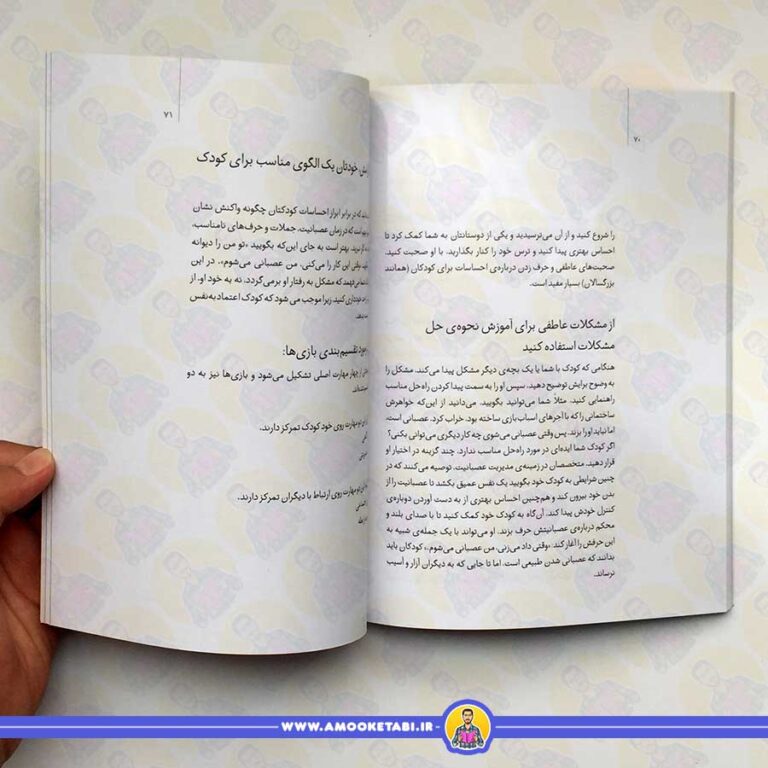 ۷۰
را شروع کنید و از آن می‌ترسیدید و یکی از دوستانتان به شما کمک کرد تا
احساس بهتری پیدا کنید و ترس خود را کنار بگذارید، با او صحبت کنید.
صحبت‌های عاطفی و حرف زدن درباره‌ی احساسات برای کودکان (همانند
بزرگسالان) بسیار مفید است.
از مشکلات عاطفی برای آموزش نحوه‌ی حل
مشکلات استفاده کنید
هنگامی که کودک با شما یا یک بچه‌ی دیگر مشکل پیدا می‌کند، مشکل را
به وضوح برایش توضیح دهید، سپس او را به سمت پیدا کردن راه‌حل مناسب
راهنمایی کنید. مثلاً شما می‌توانید بگویید، می‌دانید از این‌که خواهرش
ساختمانی را که با آجرهای اسباب‌بازی ساخته بود، خراب کرد، عصبانی است،
اما نباید او را بزند. پس وقتی عصبانی می‌شوی چه کار دیگری می‌توانی بکنی؟
اگر کودک شما ایده‌ای در مورد راه‌حل مناسب ندارد، چند گزینه در اختیار او
قرار دهید. متخصصان در زمینه‌ی مدیریت عصبانیت، توصیه می کنند که در
چنین شرایطی به کودک خود بگویید یک نفس عمیق بکشد تا عصبانیت را از
بدن خود بیرون کند و هم‌چنین احساس بهتری از به دست آوردن دوباره‌ی
کنترل خودش پیدا کند. آن‌گاه به کودک خود کمک کنید تا با صدای بلند و
محکم درباره‌ی عصبانیتش حرف بزند. او می‌تواند با یک جمله‌ی شبیه به
این حرفش را آغاز کند. «وقتی داد می‌زنی، من عصبانی می‌شوم.» کودکان باید
بدانند که عصبانی شدن طبیعی است، اما تا جایی که به دیگران آزار و آسیب
نرساند.
۷۱
خودتان یک الگوی مناسب برای کودک
که در برابر ابراز احساسات کودکتان چگونه واکنش نشان
است که در زمان عصبانیت، جملات و حرف‌های نامناسب،
بهتر است به جای این‌که بگویید «تو من را دیوانه
وقتی این کار را می‌کنی، من عصبانی می‌شوم». در این
می‌فهمد که مشکل به رفتار او برمی‌گردد، نه به خود او. از
خودداری کنید، زیرا موجب می شود که کودک اعتماد به نفس
تقسیم‌بندی بازی‌ها:
چهار مهارت اصلی تشکیل می‌شود و بازی‌ها نیز به دو
مهارت روی خود کودک تمرکز دارند.
مهارت روی ارتباط با دیگران تمرکز دارند.
WWW.AMOOKETABI.IR